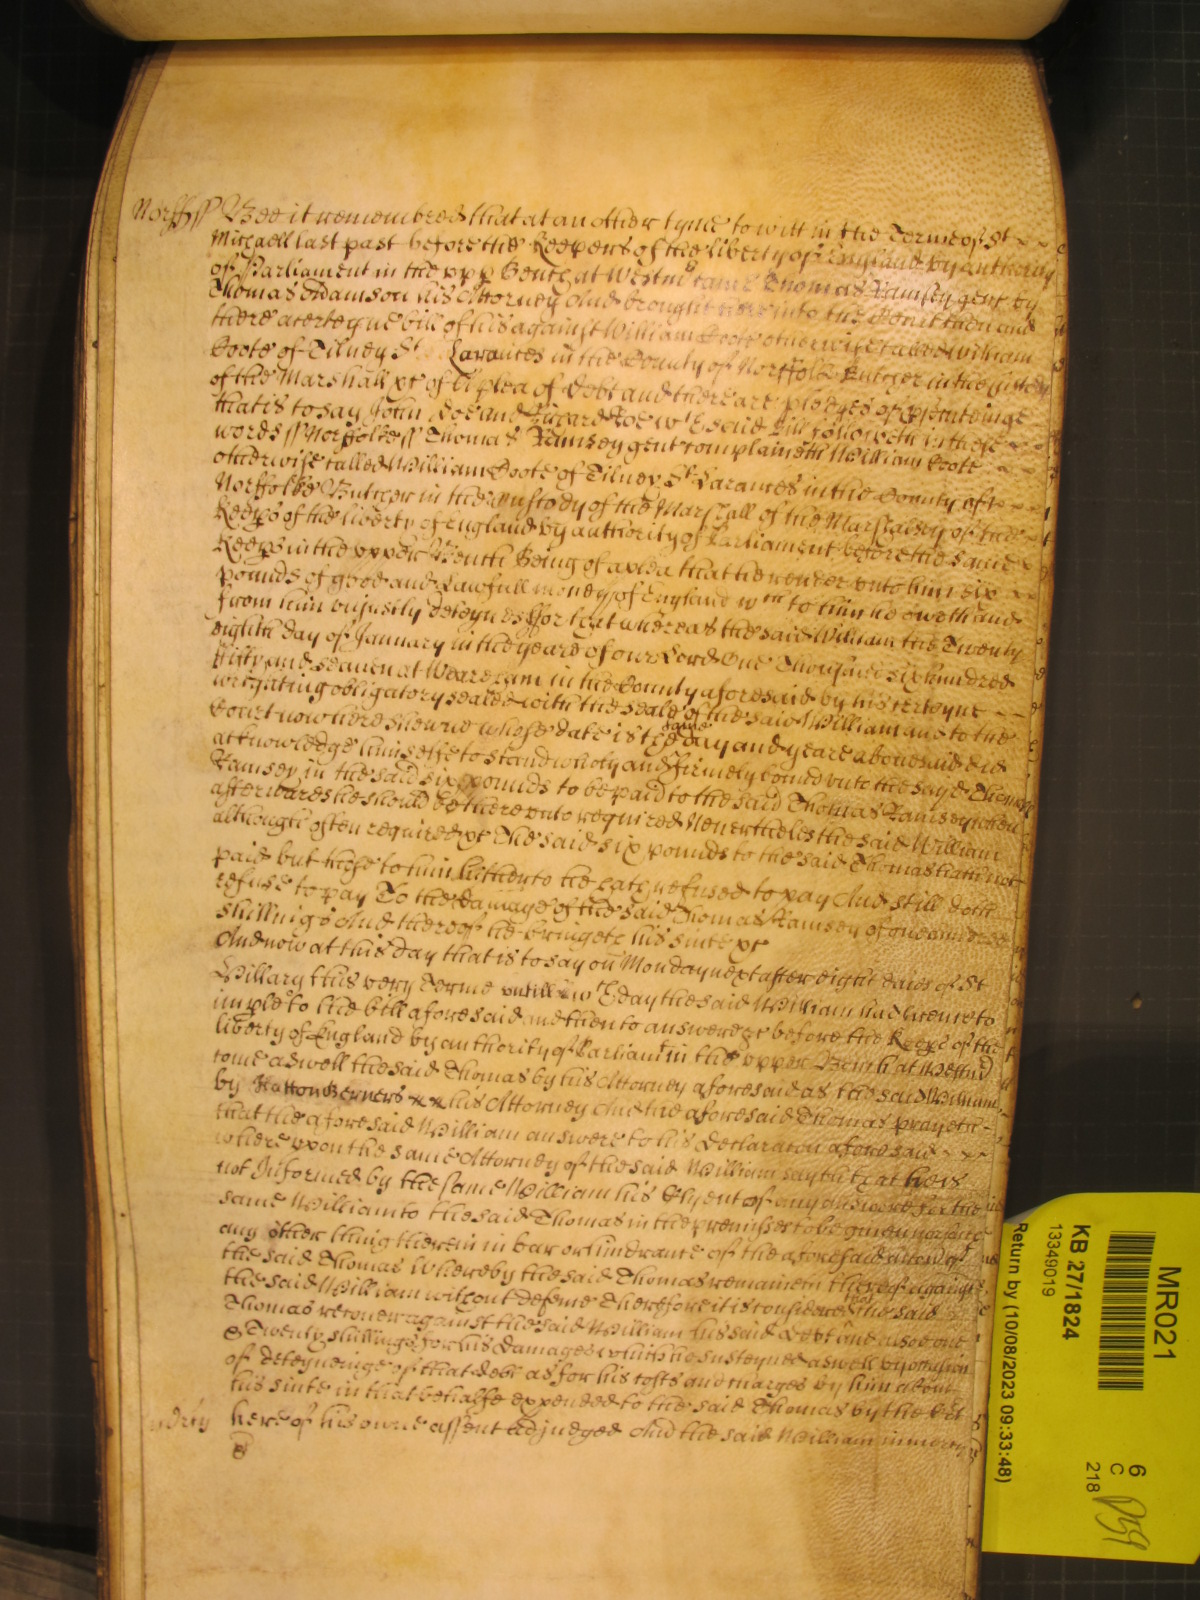 Norff ss Bee it remembred that at an other tyme to witt in the Terme of St
Michaell last past before the Keepers of the liberty of England by authority
of Parliament in the upp Bench at Westm came Thomas Ramsey gent by
Thomas Adamson his Attorney And brought here into the Court then and
there a certeyne bill of his against William Coote otherwise called William
Coote of Tilney St Laraunces in the County of Norffolk Butcher in the custody
of the Marshall &c of a plea of Debt and there are pledges of prsecutinge
that is to say John Doe and Richard Roe wch said Bill followeth in these
words ss Norffolke ss Thomas Ramsey gent complaineth of William Coote
otherwise called William Coote of Tilney St Laraunces in the County of
Norffolke Butcher in the custody of the Marshall of the Marshalsey of the
Keeps of the liberty of England by authority of Parliament before the said
Keeps in the upper Bench Being of a plea that he render unto him six
pounds of good and Lawfull money of England wch to him he oweth and
from him unjustly deteynes ffor that whereas the said William the Twenty
eighth day of January in the yeare of our Lord One Thousand six hundred
fifty and seaven at Wareham in the County aforesaid by his certeyne
wrighting obligatory sealed with the seale of the said William and to the
Court now here shewne whose date is the same day and yeare abovesaid did
acknowledge himselfe to stand wholy and firmely bound unto the sayd Thomas
Ramsey in the said six pounds to be paid to the said Thomas Ramsey when
afterwards he should be there unto required Neverthelesse the said William
although often required &c The said six pounds to the said Thomas hath not
paid but these to him hitherto he hath refused to pay And still doth
refuse to pay To the Damage of the said Thomas Ramsey of one hundred
shillings And thereof he bringeth his suite &c
And now at this day that is to say on Monday next after eight daies of St
Hillary this very Terme untill wch day the said William had licence to
imple to the bill aforesaid and then to answere &c before the Keeps of the
liberty of England by authority of Parliamt in the upper Bench at Westmr
come aswell the said Thomas by his Attorney aforesaid as the said William
by Hatton Berners his Attorney And the aforesaid Thomas prayeth
that the aforesaid William answere to his Declaracon aforesaid
whereupon the same Attorney of the said William sayth that he is
not Informed by the same William his Clyent of any answere for the
same William to the said Thomas in the premisses to be given nor saith
any other thing therein in bar or hindrance of the aforesaid accon of
the said Thomas Whereby the said Thomas remaineth thereof against
the said William without defence Therefore it is considered that the said
Thomas recover against the said William his said Debt and alsoe one
& Twenty shillings for his Damages which he susteyned aswell by occasion
of deteyneinge of that debt as for his costs and charges by him about
his suite in that behalfe expended to the said Thomas by the Crt
here of his owne assent adjudged And the said William in mercy
&
MR021
KB 27/1824
13349019
Return by (10/08/2023 09:33:48)
6
C
218